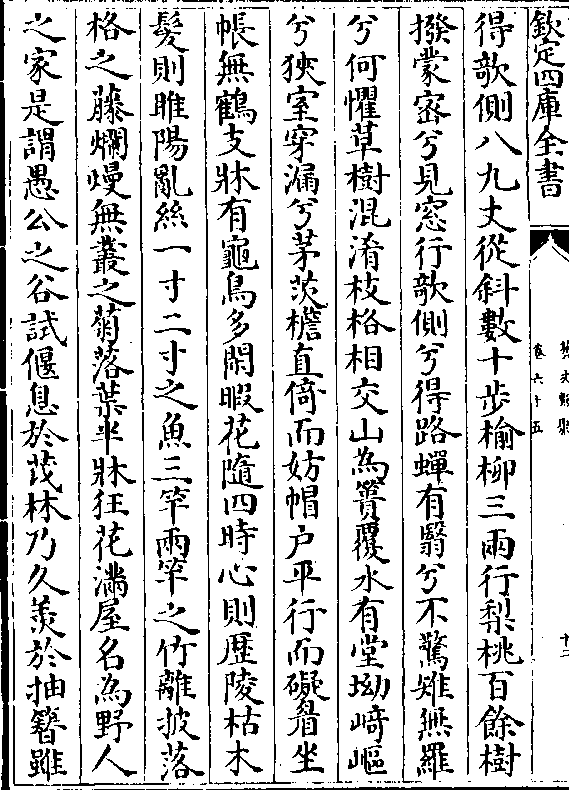 欽定四庫全書
藝文類聚
卷六十五
十二
得欹側八九丈從斜數十步榆柳三兩行梨桃百餘樹
撥蒙宻兮見窓行欹側兮得路蟬有翳兮不驚雉無羅
兮何懼草樹混淆枝格相交山為簣覆水有堂坳﨑嶇
兮狹室穿漏兮茅茨檐直倚而妨帽户平行而礙眉坐
帳無鶴支牀有龜鳥多閑暇花隨四時心則歷陵枯木
髮則睢陽亂絲一寸二寸之魚三竿兩竿之竹離披落
格之藤爛熳無叢之菊落葉半牀狂花滿屋名為野人
之家是謂愚公之谷試偃息於茂林乃久羨於抽簪雖